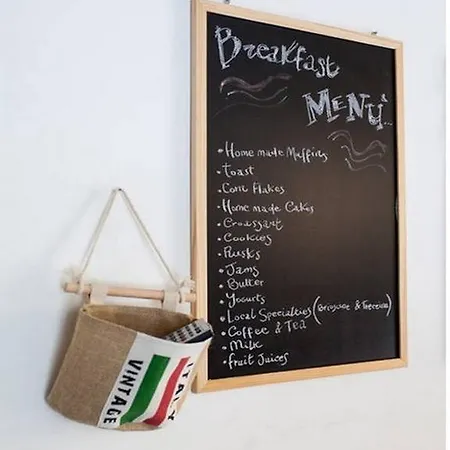 Breakfast
MENÙ...
Home made Muffins
toast
Corn Flakes
Home made Cakes
Croissant
Cookies
Rusks
Jams
Butter
Yogurts
Local Specialties (Brioche &
Coffee & Tea
Milk
fruit Juices
ITALY
VINTAGE